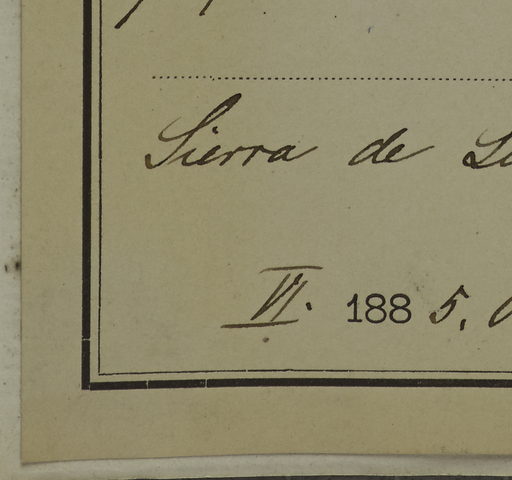 Sierra de
VI. 1885.